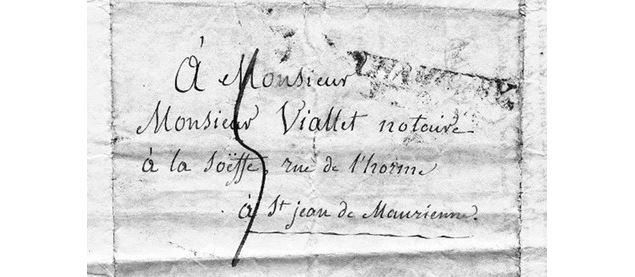 À Monsieur
Monsieur Viallet notaire
à la soëffe, rue de l'horme
à St jean de Maurienne.